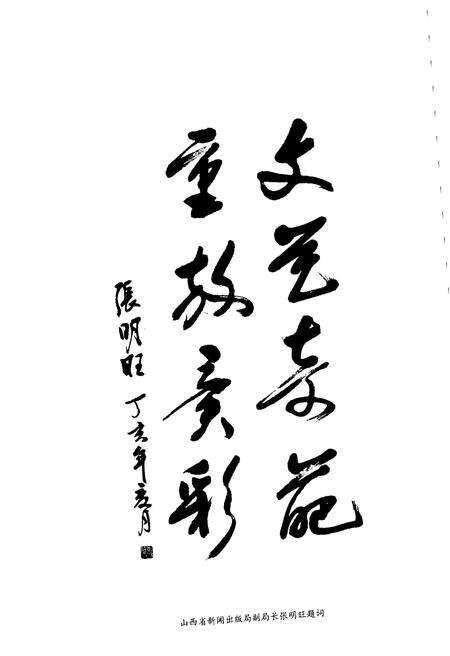 文艺奇葩
重放异彩
張明旺 丁亥年夏月
山西省新闻出版局副局长张明旺题词